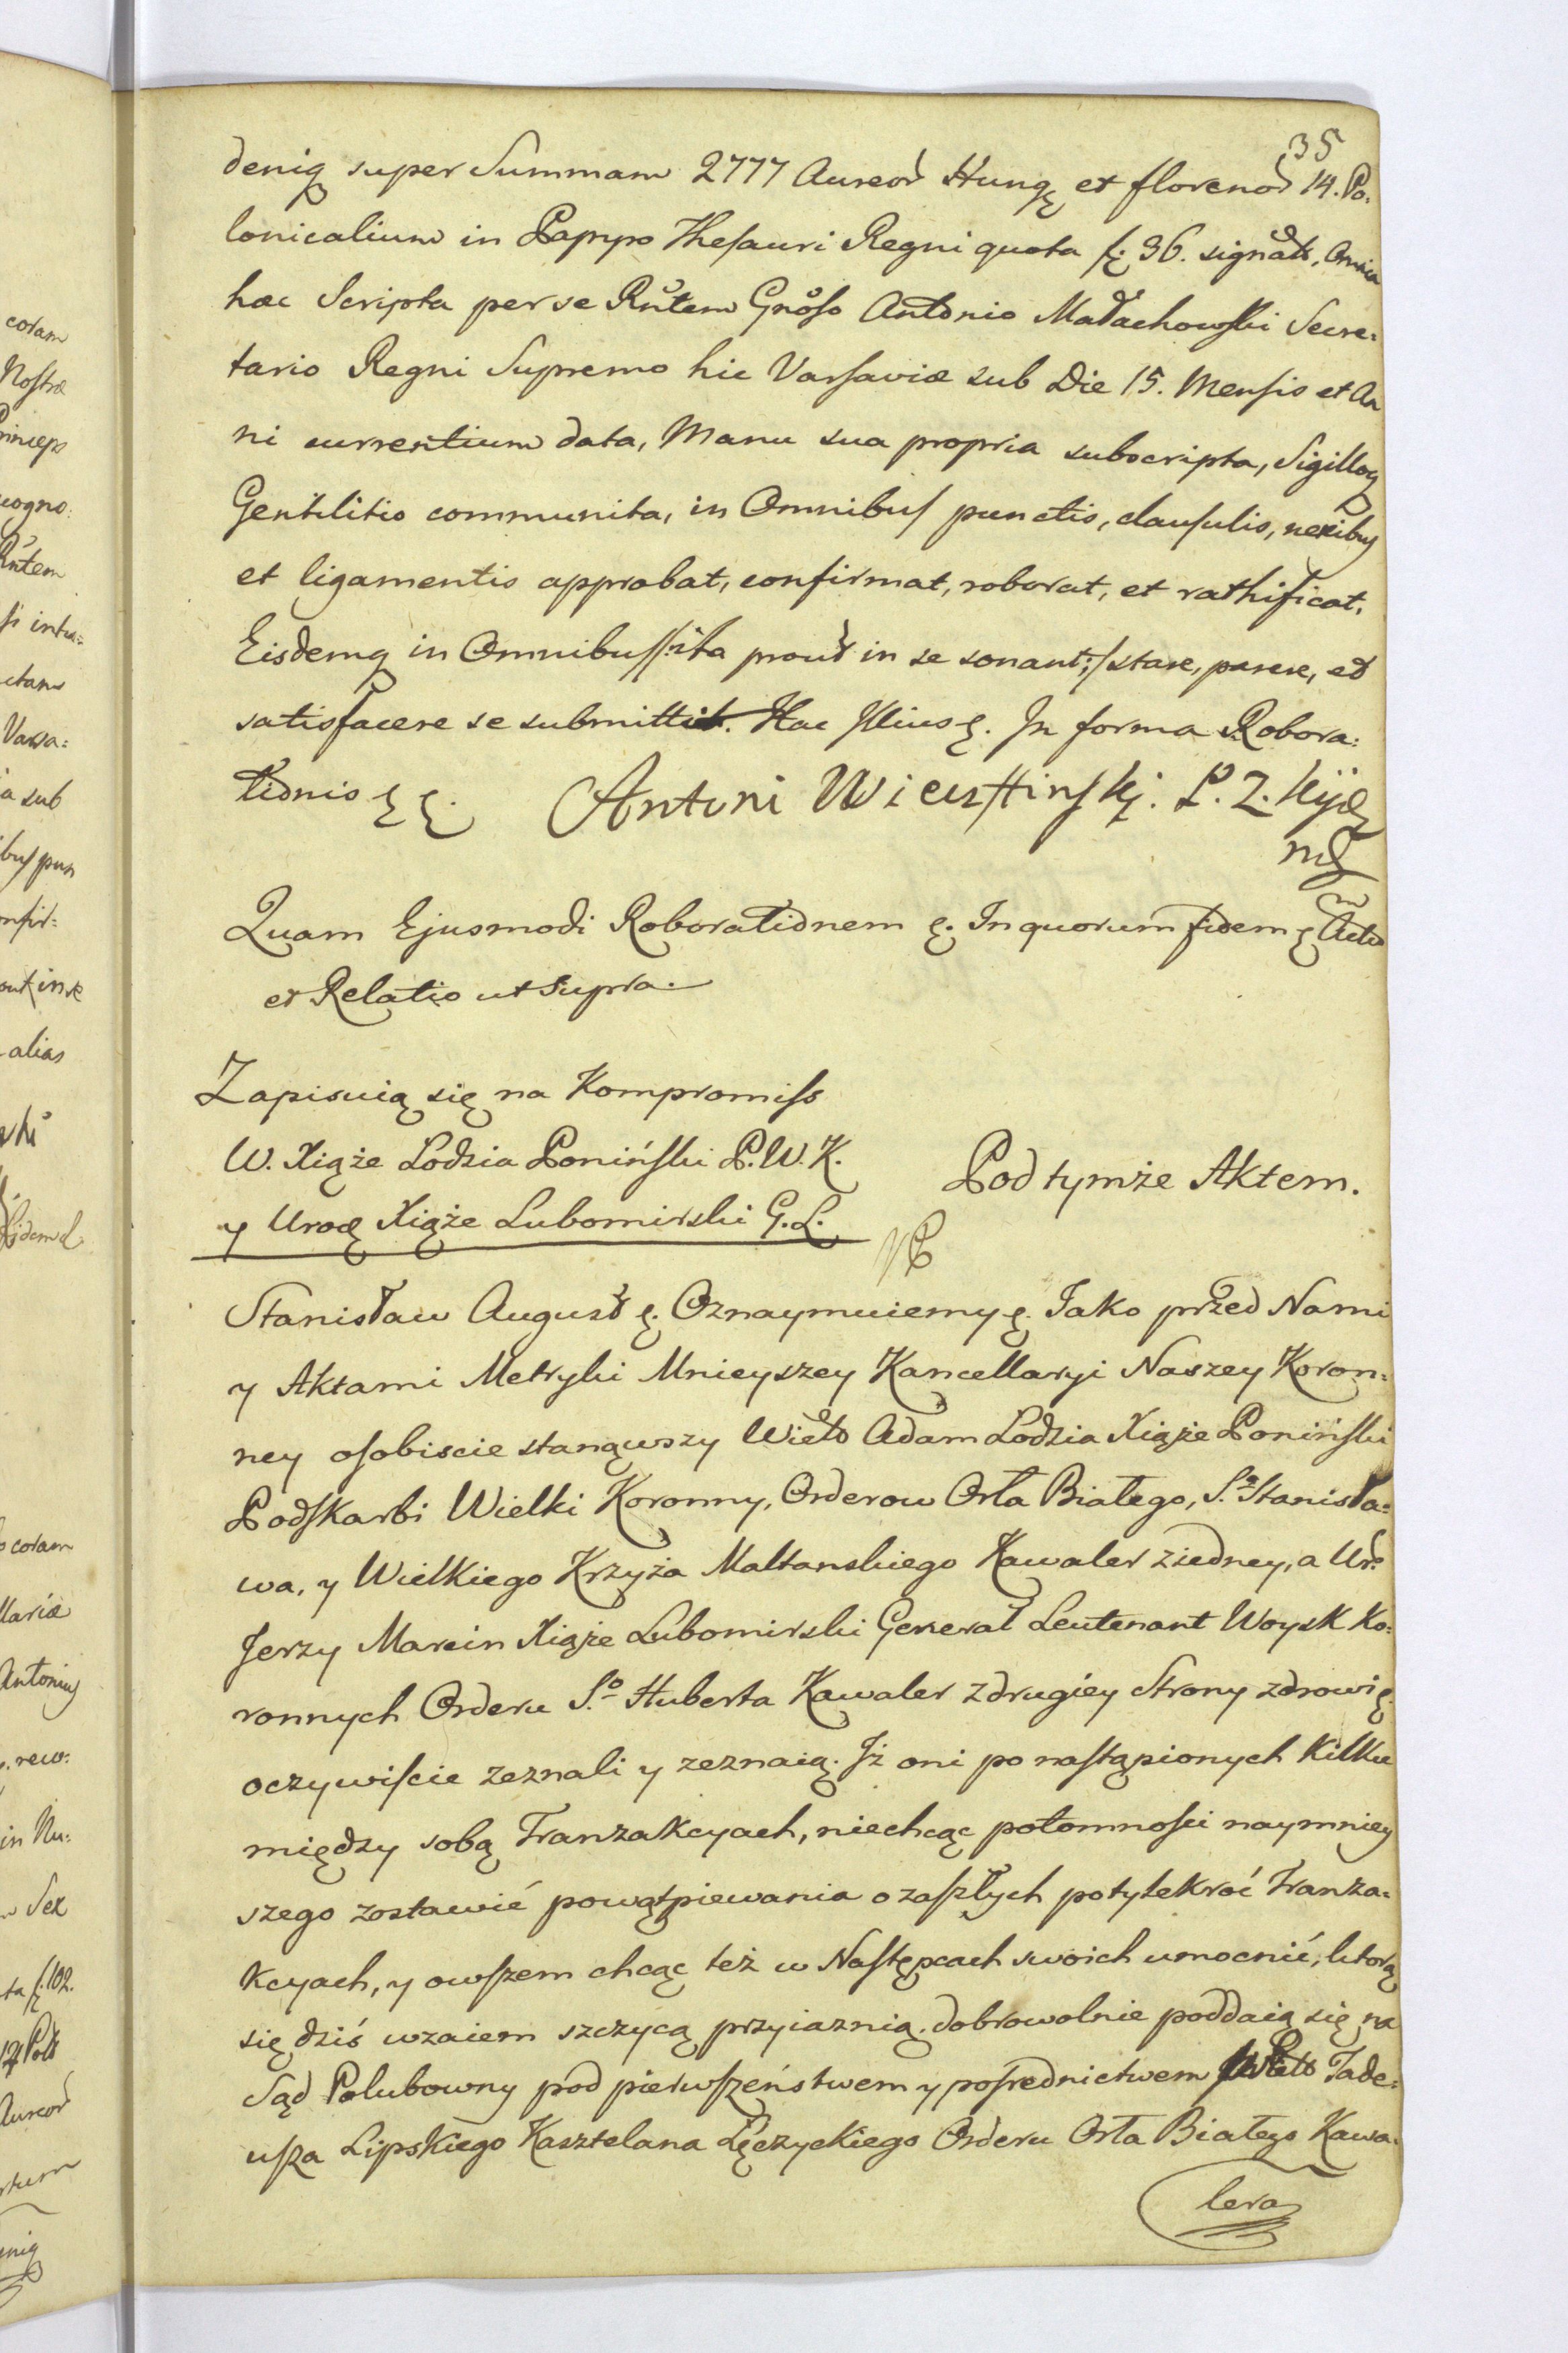 35
deniq super Summam 2777 Aureor Hung et florenor 14. Po:
lonicalium in Pappo Thesauri Regni quota f. 36. signat, Omnia
hac Scripta per se Rntem Gnoso Antonio Małachowski Secre:
tario Regni Supremo hic Varsaviæ sub Die 15. Mensis et An
ni currentium data, Manu sua propria subscripta, Sigilloq
Gentilitio communita, in Omnibus punctis, clausulis, nexibus
et ligamentis approbat, confirmat, roborat, et rathificat,
Eisdemq in Omnibus /:ita prout in se sonant:/ stare, parere, et
satisfacere se submittit. Hac Illius ę. In forma Robora:
tionis ę ę. Antoni Wierzttinskj. P. Z. Kij
mp
Quam Ejusmodi Roborationem ę. In quorum fidem ę Actum
et Relatio ut supra.
Zapisuią się na Kompromiss
W. Xiąże Lodzia Poniński P.W.K.
y Urod Xiąże Lubomirski G.L.
Pod tymże Aktem.
Stanisław August ę. Oznaymuiemy ę. Iako przed Nami
y Aktami Metryki Mnieyszey Kancellaryi Naszey Koron:
ney osobiscie stanąwszy Wielo Adam Lodzia Xiąże Poniński
Podskarbi Wielki Koronny, Orderow Orła Białego, S.o Stanisła:
wa, y Wielkiego Krzyża Maltanskiego Kawaler z iedney, a Ur.
Jerzy Marcin Xiąże Lubomirski Generał Leutenant Woysk Ko:
ronnych Orderu S.o Huberta Kawaler z drugiey Strony zdrowi ę.
oczywiscie zeznali y zeznaią. Iż oni po nastąpionych kilku
między sobą Tranzakcyach, niechcąc potomnosci naymniey
szego zostawić powątpiewania o zaszłych potylekroć Tranza:
kcyach, y owszem chcąc też w Następcach swoich umocnić, ktorą
się dziś wzaiem szczycą przyiaznią. dobrowolnie poddaią się na
Sąd Polubowny pod pierwszeństwem y posrednictwem Wielo Tade:
usza Lipskiego Kasztelana Łęczyckiego Orderu Orła Białego Kawa:
lera